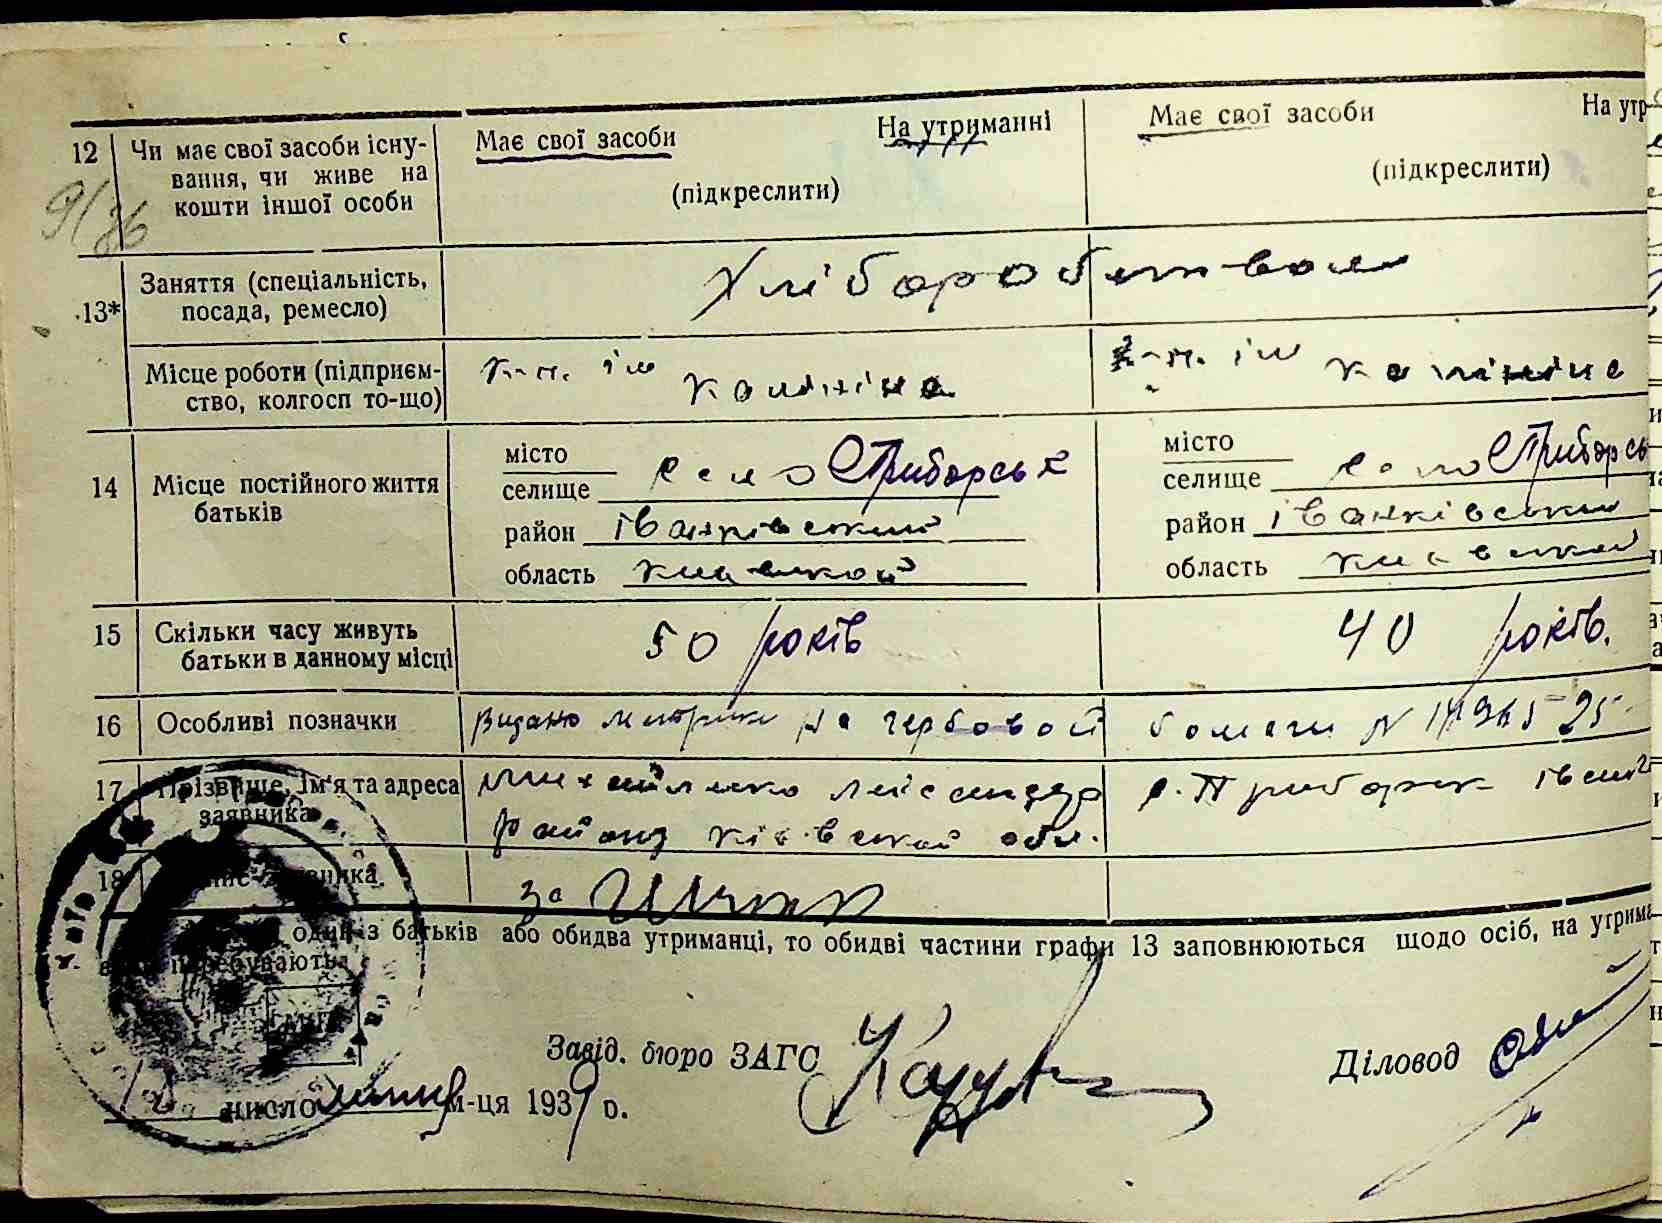 12 Чи має свої засоби існу- Має свої засоби На утриманні Має свої засоби На утр
вання, чи живе на (підкреслити) (підкреслити)
кошти іншої особи
9/36
13* Заняття (спеціальність, Хліборобством
посада, ремесло)
Місце роботи (підприєм- к-п. ім Калініна к-п. ім Калініна
ство, колгосп то-що)
14 Місце постійного життя місто місто
батьків селище село Приборськ селище село Приборськ
район Іванківський район Іванківський
область Київської область Київської
15 Скільки часу живуть 50 років 40 років.
батьки в данному місці
16 Особливі позначки Видано метрики на гербовой бомаги N
17 Прізвище, ім'я та адреса Олександр с. Приборск
заявника району Київської обл.
18 за
один з батьків або обидва утриманці, то обидві частини графи 13 заповнюються щодо осіб, на утрима
перебувають
Завід. бюро ЗАГС Діловод
число м-ця 1939 р.